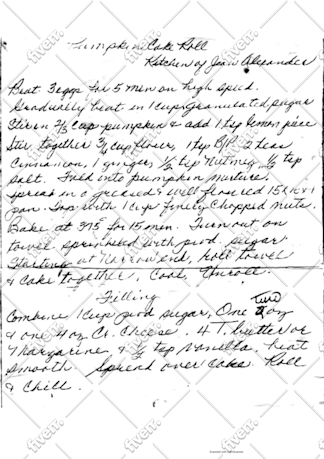 Pumpkin Cake Roll
Kitchen of Jean Alexander
Beat 3 eggs for 5 min on high speed.
Gradually beat in 1 cup granulated sugar
Stir in 2/3 cup pumpkin & add 1 tsp lemon juice
Stir together 3/4 cup flour, 1 tsp B/P 2 teas
Cinnamon, 1 ginger, 1/2 tsp Nutmeg 1/2 tsp
Salt. Fold into pumpkin mixture.
Spread in a greased & well floured 15 x 10 x 1
pan. Top with 1 cup finely chopped nuts.
Bake at 375° for 15 min. Turn out on
towel sprinkled with powd. sugar.
Starting at Narrow end, roll towel
& cake together, Cool, Unroll.
Filling
Combine 1 cup powd sugar, One
two
oz
& one 4 oz Cr. Cheese. 4 T. butter or
Margarine, & 1/2 tsp Vanilla. beat
smooth Spread over cake. Roll
& Chill.
fiverr.